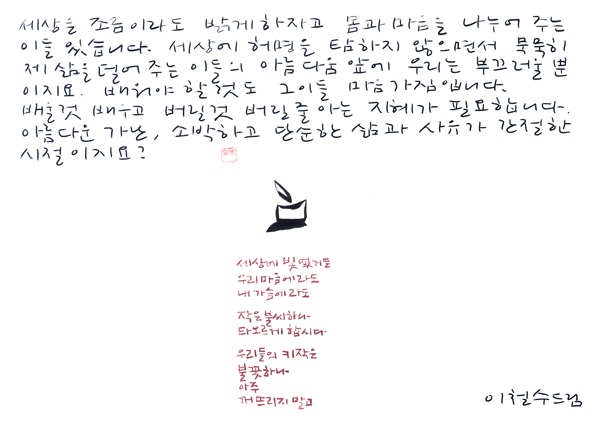 세상을 조금이라도 밝게하자고 몸과 마음을 나누어 주는
이들 있습니다. 세상에 허명을 탐하지 않으면서 묵묵히
제 삶을 덜어 주는 이들의 아름다움 앞에 우리는 부끄러울 뿐
이지요. 배워야 할것도 그이들 마음가짐입니다.
배울것 배우고 버릴것 버릴줄 아는 지혜가 필요합니다.
아름다운 가난, 소박하고 단순한 삶과 사유가 간절한
시절이지요?
세상에 빛 없거든
우리마음에라도
내 가슴에라도
작은불씨하나
타오르게 합시다
우리들의 키작은
불꽃하나
아주
꺼뜨리지 말고
이철수드림